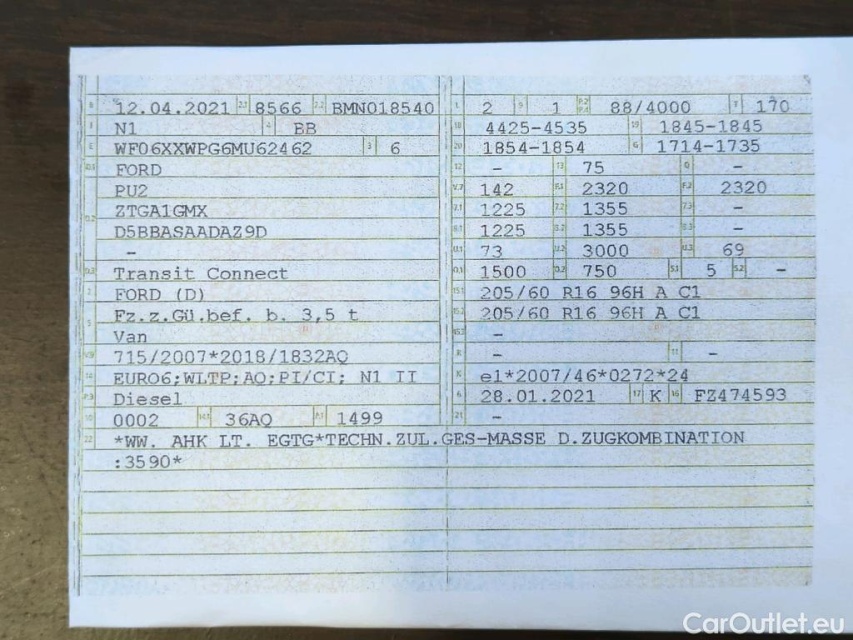 B 12.04.2021 2.1 8566 2.2 BMN018540
J N1 4 BB
E WF06XXWPG6MU62462 3 6
D.1 FORD
PU2
D.2 ZTGA1GMX
D5BBASAADAZ9D
–
D.3 Transit Connect
2 FORD (D)
5 Fz.z.Gü.bef. b. 3,5 t
Van
V.9 715/2007*2018/1832AQ
14 EURO6;WLTP;AQ;PI/CI; N1 II
P.3 Diesel
10 0002 14.1 36AQ P.1 1499
22 *WW. AHK LT. EGTG*TECHN.ZUL.GES-MASSE D.ZUGKOMBINATION
:3590*
L 2 9 1 P.2 P.4 88/4000 T 170
18 4425–4535 19 1845–1845
20 1854–1854 G 1714–1735
12 – 13 75 Q –
V.7 142 F.1 2320 F.2 2320
7.1 1225 7.2 1355 7.3 –
8.1 1225 8.2 1355 8.3 –
U.1 73 U.2 3000 U.3 69
O.1 1500 O.2 750 S.1 5 S.2 –
15.1 205/60 R16 96H A C1
15.2 205/60 R16 96H A C1
15.3 –
R – 11 –
K e1*2007/46*0272*24
6 28.01.2021 17 K 16 FZ474593
21 –
CarOutlet.eu